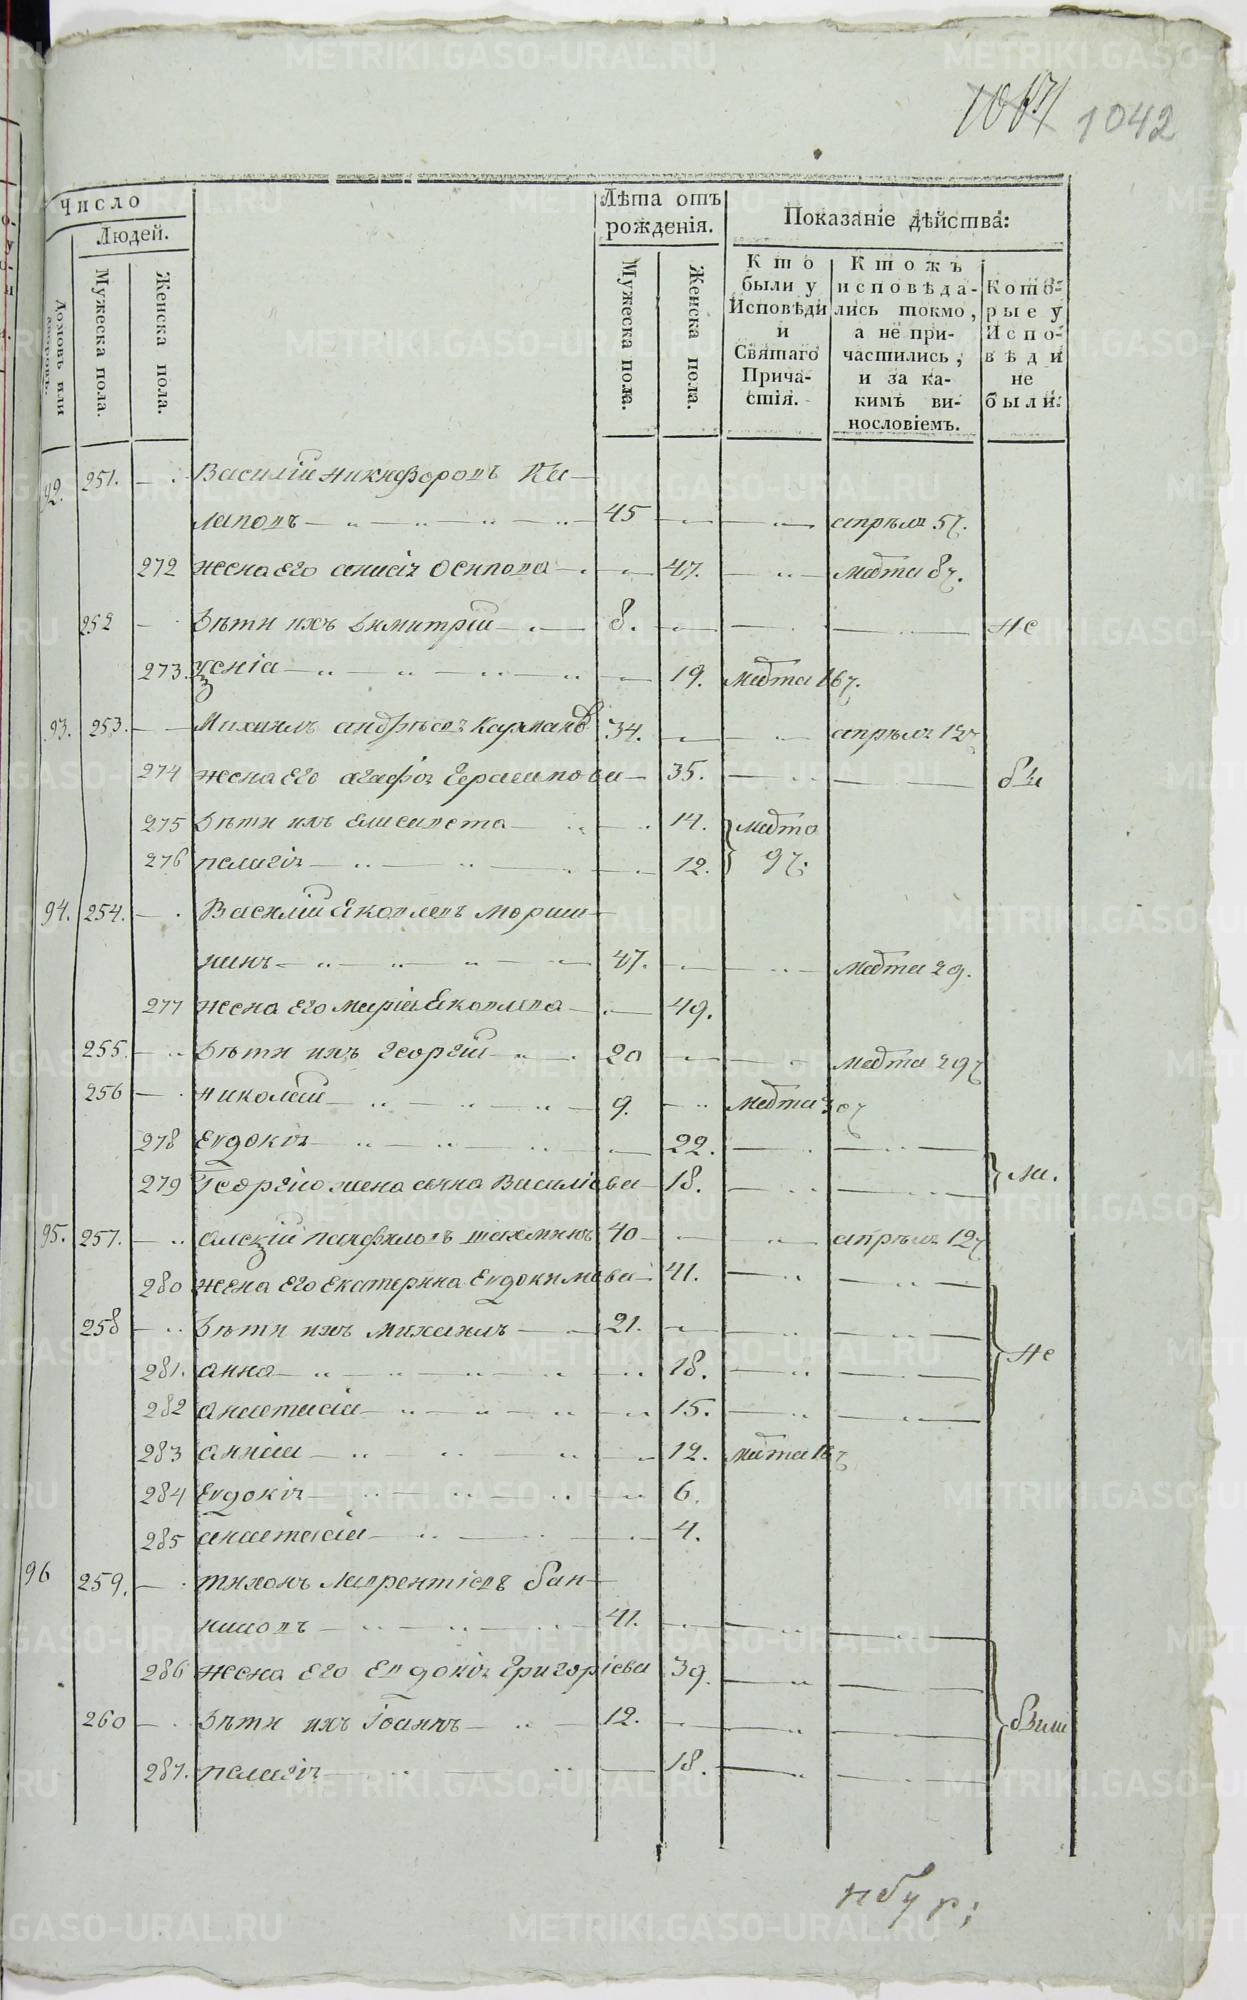 1042
Число
Людей.
Домовъ или
Мужеска пола.
Женска пола.
Лѣта отъ
рожденія.
Мужеска пола.
Женска пола.
Показаніе дѣйства:
Кто
были у
Исповѣди
и
Святаго
Прича-
стія.
Ктожъ
исповѣда-
лись токмо,
а не при-
частились,
и за ка-
кимъ ви-
нословіемъ.
Кото-
рые у
Испо-
вѣди
не
были.
92. 251. Василій Никифоровъ
45 апрѣля 5
272 жена его анисія Осипова 47. марта 8
252 Дѣти ихъ Димитрій 8. не
273. ксенія 19. марта 16
93. 253. Михаилъ андрѣевъ 34. апрѣля 12
274 жена его агафія Герасимова 35.
275 Дѣти ихъ елисавета 14. марта
276 пелагія 12. 9
94. 254. Василій Яковлевъ Морши-
нинъ 47. марта 29.
277 жена его марія Яковлева 49.
255. Дѣти ихъ георгій 20 марта 29
256 николай 9. марта 30
278 Евдокія 22.
279 Георгію жена анна Василіева 18.
95. 257. алексій панфиловъ 40 апрѣля 12
280 жена его екатерина Евдокимова 41.
258 Дѣти ихъ михаилъ 21. не
281. анна 18.
282 анастасія 15.
283 анна 12. марта 16
284 Евдокія 6.
285 анастасія 4.
96 259. тихонъ Лаврентіевъ бан-
никовъ 41.
286 жена его Евдокія григоріева 39.
260 Дѣти ихъ Іоаннъ 12.
287. пелагія 18.
METRIKI.GASO-URAL.RU